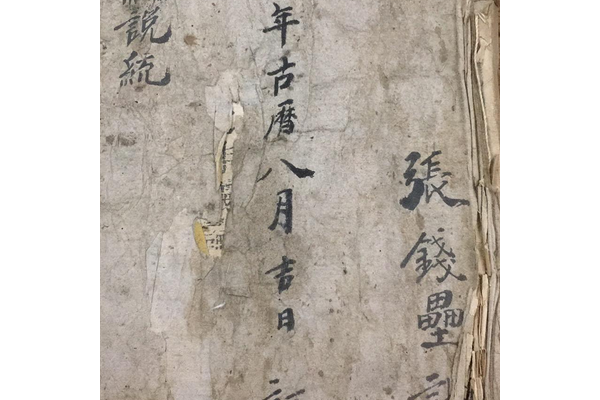 張錢壘
年古曆八月吉日
說統